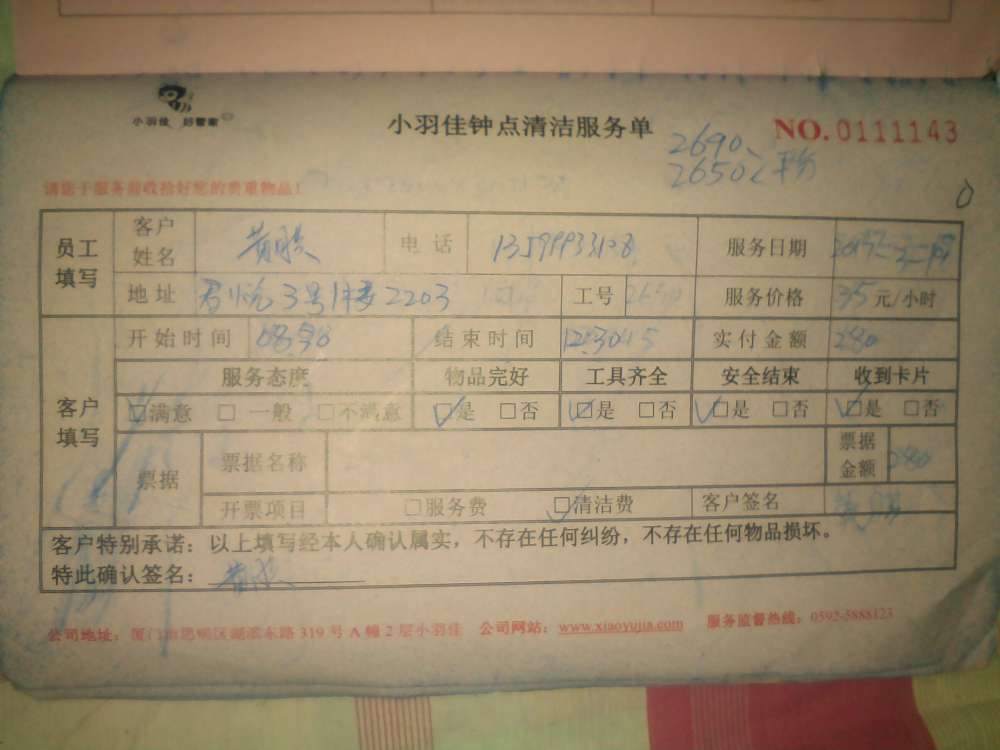 小羽佳 好管家
小羽佳钟点清洁服务单
NO.0111143
2690
2650
请您于服务前收拾好您的贵重物品!
员工填写 客户姓名 黄 电话 服务日期
地址 3号楼2203 工号 2650 服务价格 35元/小时
客户填写 开始时间 08:30 结束时间 实付金额 280
服务态度 物品完好 工具齐全 安全结束 收到卡片
☑满意 □一般 □不满意 ☑是 □否 ☑是 □否 ☑是 □否 ☑是 □否
票据 票据名称 票据金额 280
开票项目 □服务费 ☑清洁费 客户签名
客户特别承诺：以上填写经本人确认属实，不存在任何纠纷，不存在任何物品损坏。
特此确认签名：黄
公司地址：厦门市思明区湖滨东路319号A幢2层小羽佳 公司网站：www.xiaoyujia.com 服务监督热线：0592-5888123